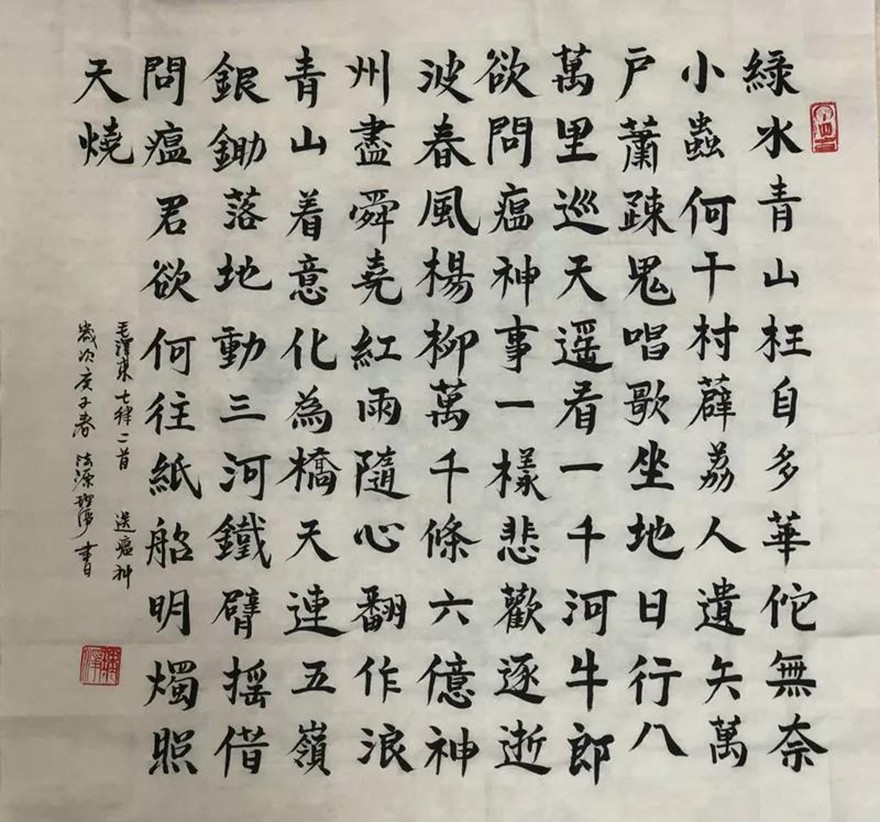 綠水青山枉自多華佗無奈
小蟲何干村薜荔人遺矢萬
戶蕭疎鬼唱歌坐地日行八
萬里巡天遥看一千河牛郎
欲問瘟神事一樣悲歡逐逝
波春風楊柳萬千條六億神
州盡舜堯紅雨隨心翻作浪
青山着意化為橋天連五嶺
銀鋤落地動三河鐵臂摇借
問瘟君欲何往紙船明燭照
天燒
毛澤東七律二首 送瘟神
歲次庚子春 書